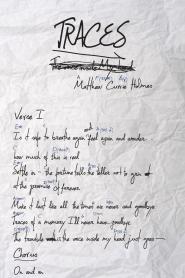 TRACES
The voice inside My head
Matthew Currie Holmes
Verse I
Is it safe to breathe again, feel again and wonder
how much of this is real
Settle in - the fortune tells the teller not to give
at the promise of forever
Make it last like all the times no never and goodbye
traces of a memory I'll never have goodbye
the trouble is the voice inside my head just goes -
Chorus
On and on